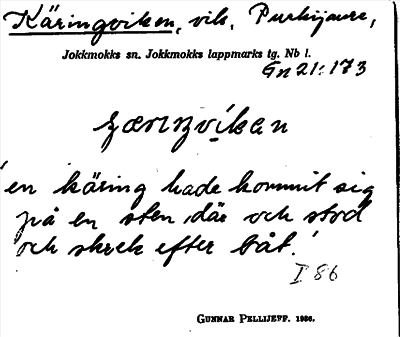 Käringviken, vik, Purkijaure,
Jokkmokks sn. Jokkmokks lappmarks tg. Nb l.
Gn 21:173
en käring hade kommit sig
på en sten där och stod
och skrek efter båt.
I 86
GUNNAR PELLIJEFF. 1936.